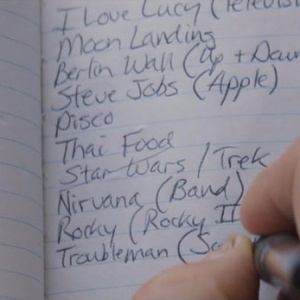 I Love Lucy (Televis
Moon Landing
Berlin Wall (Up + Dow
Steve Jobs (Apple)
Disco
Thai Food
Star Wars / Trek
Nirvana (Band)
Rocky (Rocky II
Troubleman (So